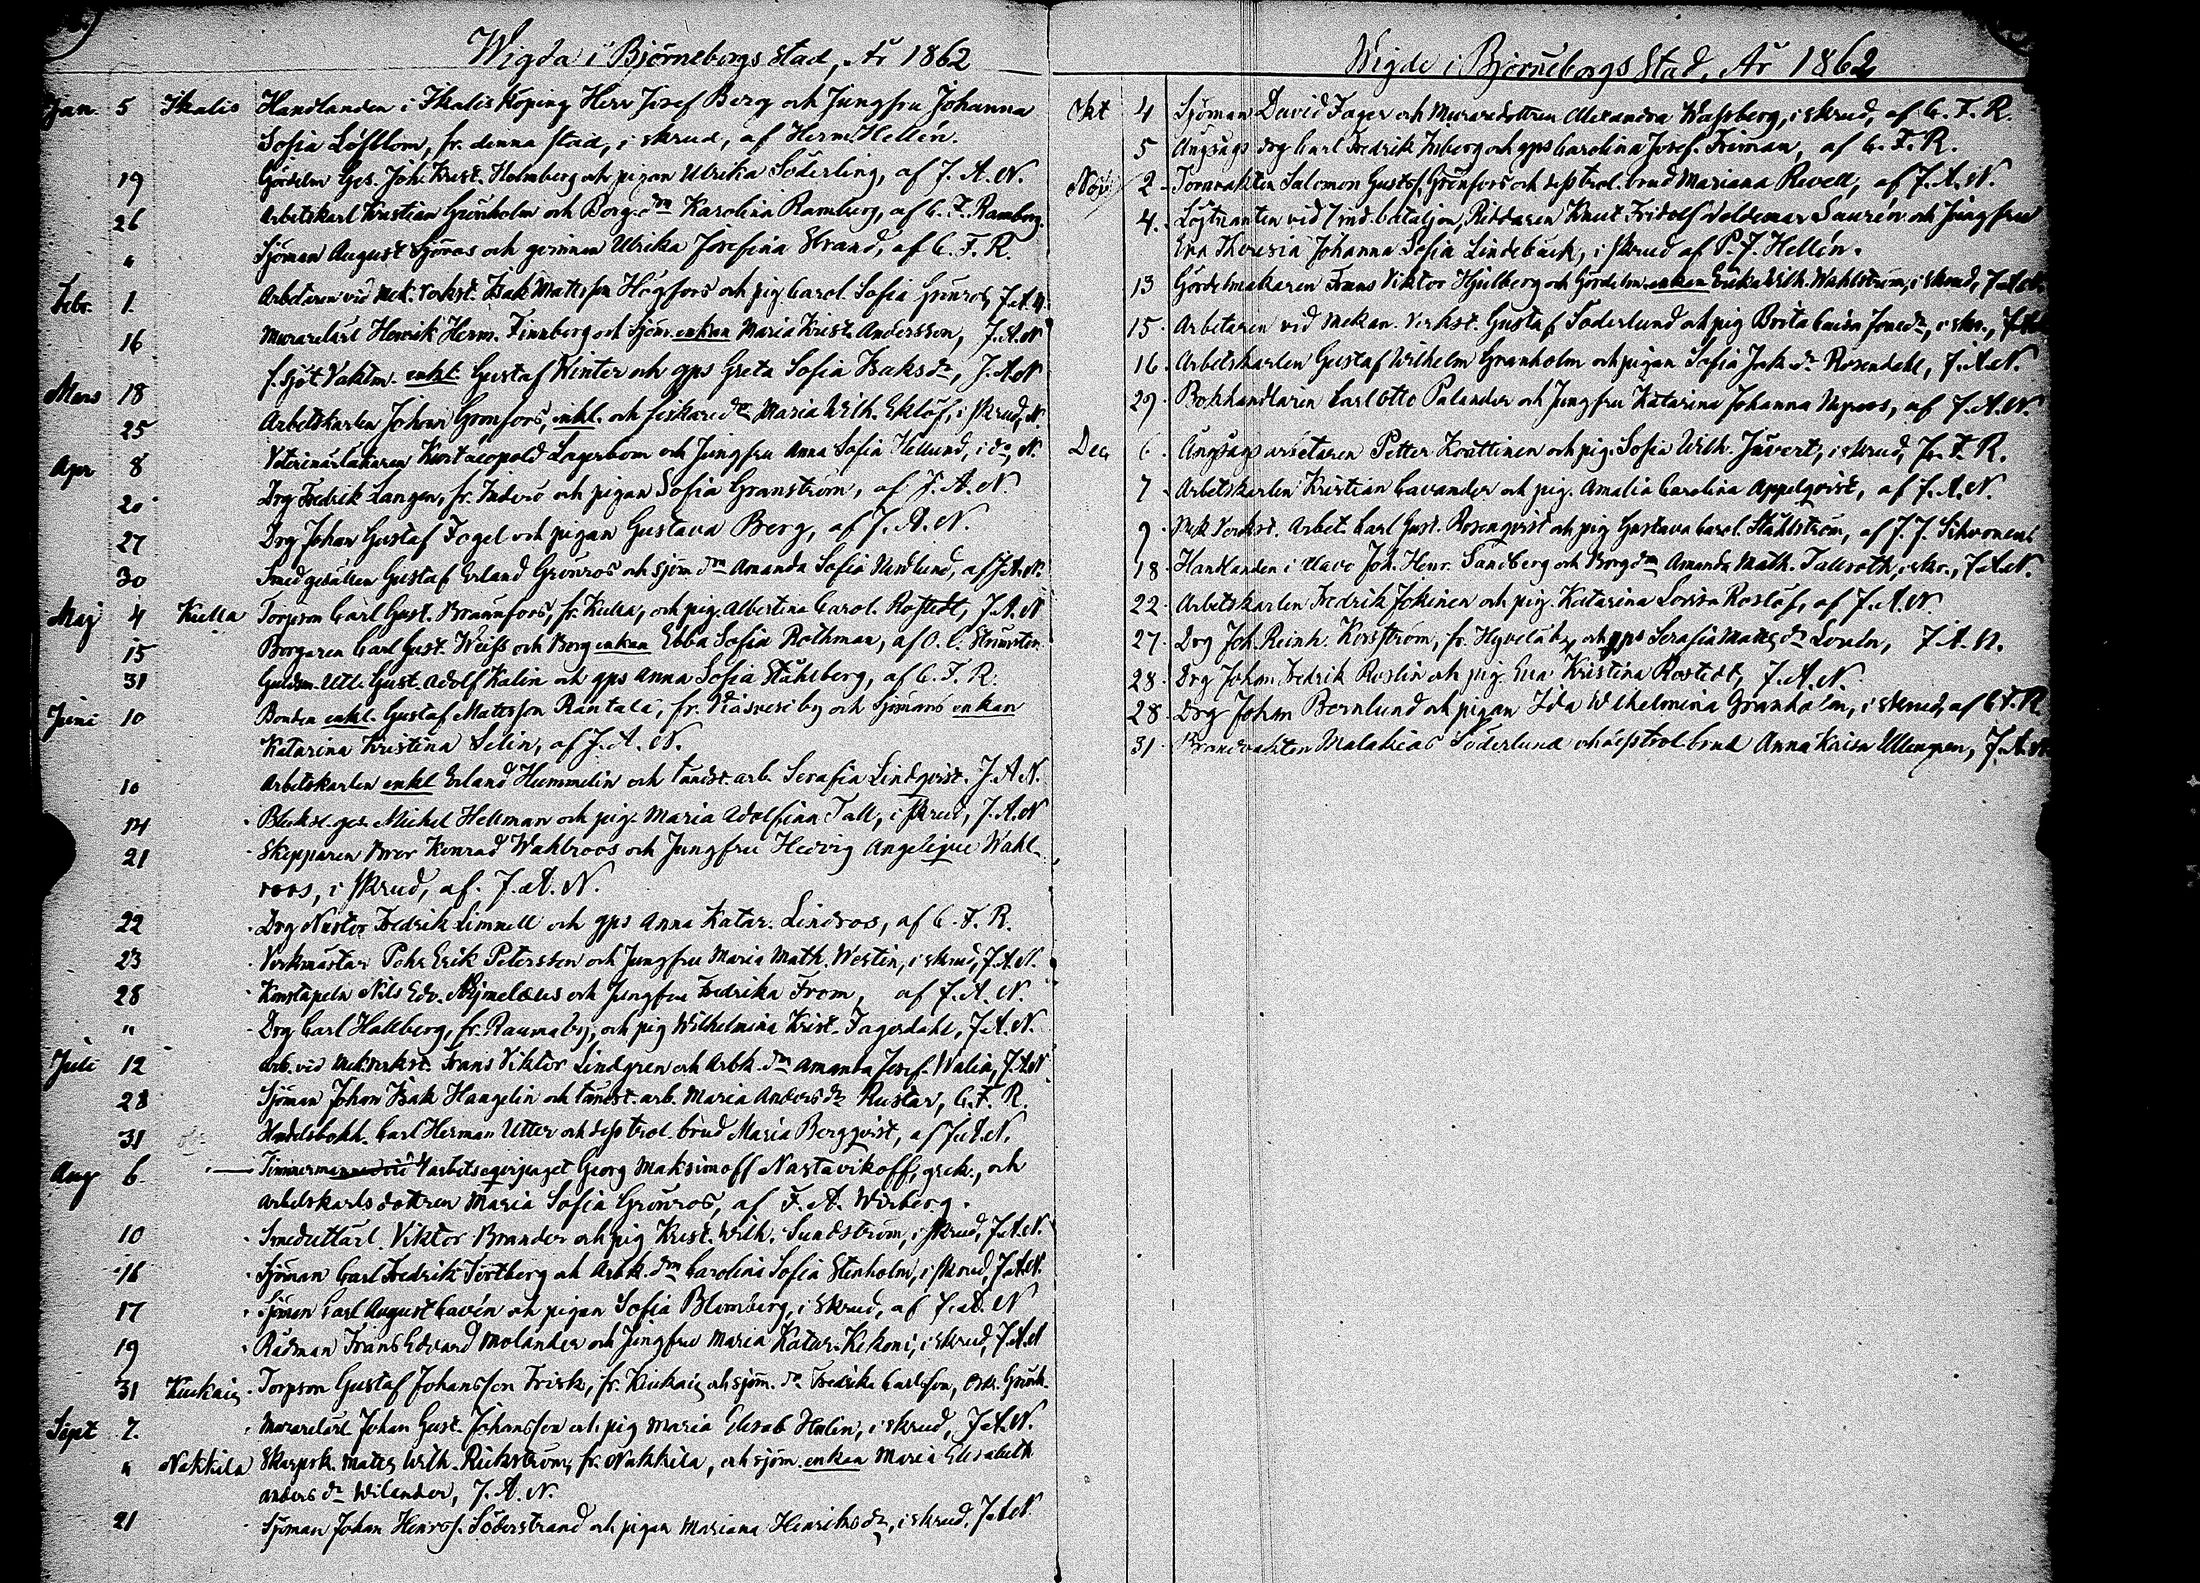 Wigda i Björneborgs stad, År 1862
Jan. 5 Ikalis Handlanden i Ikalis Köping Herr Josef Berg och Jungfru Johanna
Sofia Löfblom, fr. denna stad, i skrud, af Herm. Hellén.
19 Gördelm Ges. Joh. Krist. Holmberg och pigan Ulrika Söderling, af J. A. N.
26 Arbetskarl Kristian Grönholm och Borg. dn Karolina Ramberg, af C. F. Ramberg.
" Sjöman August Sjöroos och qvinnan Ulrika Josefina Strand, af C. F. R.
Febr. 1. Arbetaren vid Mek. Verkst. Isak Mattsson Högfors och pig Carol. Sofia Grönroos, J. A. N.
16 Murarelärl Henrik Herm. Finnberg och Sjöm. enkan Maria Krist. Andersson, J. A. N
Mars 18 f. Sjöt. Vaktm. enkl. Gustaf Winter och gps Greta Sofia Isaksdr, J. A. N
25 Arbetskarlen Johan Grönfors, enkl. och fiskaredr Maria Wilh. Eklöf, i skrud, N.
Apr 8 Veterinärläkaren Kurt Leopold Lagerbom och Jungfru Anna Sofia Hellund, i do, N.
20 Drg Fredrik Langen, fr. Inderö och pigan Sofia Granström, af J. A. N.
27 Drg Johan Gustaf Fogel och pigan Gustava Berg, af J. A. N.
30 Smedgesällen Gustaf Erland Grönroos och sjöm dn Amanda Sofia Nordlund, af J. A. N.
Maj 4 Kulla Torpson Carl Gust. Brannfors, fr. Kulla, och pig. Albertina Carol. Rostedt, J. A. N
15 Borgaren Carl Gust. Weiss och Borg enkan Ebba Sofia Rothman, af O. C.
31 Guldsm. Utl. Gust. Adolf Kalin och gps Anna Sofia Ståhlberg, af C. F. R.
Juni 10 Bonden enkl. Gustaf Mattsson Rantala, fr. by och Sjömans enkan
Katarina Kristina Selin, af J. A. N.
10 Arbetskarlen enkl Erland Hummelin och tändst. arb. Serafia Lindqvist. J. A N.
14 Bleksl. ges. Michel Hellman och pig. Maria Adolfina Tall, i skrud, J. A. N
21 Skepparen Bror Konrad Wahlroos och Jungfru Hedvig Angelique Wahl-
roos, i skrud, af J. A. N.
22 Drg Nestor Fredrik Limnell och gps Anna Katar. Lindroos, af C. F. R.
23 Verkmästar Pehr Erik Petersson och Jungfru Maria Math. Westin, i skrud, J. A. N.
28 Konstapeln Nils Edv. Nymelæus och Jungfru Fredrika From, af J. A. N.
" Drg Carl Hallberg, fr. Raumaby, och pig Wilhelmina Krist. Fagerdahl, J. A. N.
Juli 12 Arb. vid Mek. verkst. Frans Viktor Lindgren och Arbk. dn Amanda Josef. Walin, J. A. N
28 Sjöman Johan Isak Haagelin och tändst. arb. Maria Andersdr Rustar, C. F. R
31 Handelsbokh. Carl Herman Utter och dess trol. brud Maria Bergqvist, af J. A. N.
Aug 6 arbetsqvipaget Georg Maksimoff Nastavikoff, grek., och
Arbetskarlsdottren Maria Sofia Grönroos, af F. A. Wirberg.
10 Smedutlärl. Viktor Brander och pig Krist. Wilh. Sundström, i skrud, J. A. N.
16 Sjöman Carl Fredrik Törtberg och Arbk. dn Carolina Sofia Stenholm, i skrud, J. A. N.
17 Sjöman Carl August Cavén och pigan Sofia Blomberg, i skrud, af J. A. N
19 Rådman Frans Edvard Molander och Jungfru Maria Katar. Kekoni, i skrud, J. A. N
31 Kiukais Torpson Gustaf Johansson Frisk, fr. Kiukais och sjöm. dr Fredrika Carlsson,
Sept 7. Murarelärl Johan Gust. Johansson och pig Maria Elisab Holin, i skrud, J. A. N.
" Nakkila Skarpsk. Matts Wilh. Rickström, fr. Nakkila, och sjöm. enkan Maria Elisabeth
Andersdr Wilander, J. A. N.
21 Sjöman Johan Henr. Söderstrand och pigan Mariana Henriksdr, i skrud, J. A. N
Wigde i Björneborgs Stad, År 1862
Okt 4 Sjöman David Fager och Muraredottren Alexandra Wassberg, i skrud, af C. F. R.
5 Ångsågs drg Carl Fredrik Inberg och gps Carolina Josef. Friman, af C. F. R.
Nov. 2 Tornvakten Salomon Gustaf Grönfors och dess trol. brud Mariana Revell, af J. A. N.
4. Löjtnanten vid 7 ind. bataljon, Riddaren Knut Fridolf Voldemar Saurén och Jungfru
Eva Theresia Johanna Sofia Lindebäck, i skrud af P. J. Hellén.
13 Gördelmakaren Frans Viktor Hjulberg och Gördelm. enkan Erika Wilh. Wahlström, i skrud, J. A. N.
15. Arbetaren vid Mekan. Verkst. Gustaf Söderlund och pig Brita Caisa Jonedr, i skr., J. A.
16. Arbetskarlen Gustaf Wilhelm Granholm och pigan Sofia Jak. dr Rosendahl, J. A. N.
29. Bokhandlaren Carl Otto Palander och Jungfru Katarina Johanna Nyroos, af J. A. N.
Dec 6. Ångsågs arbetaren Petter Knuttinen och pig. Sofia Wilh. Juvert, i skrud, F. R.
7. Arbetskarlen Kristian Cavander och pig. Amalia Carolina Appelqvist, af J. A. N.
9. Mek. Verkst. Arbet. Carl Gust. Rosenqvist och pig Gustava Carol. Ståhlström, af J. J. Sihvonens
18. Handlanden i Ulavo Joh. Henr. Sandberg och Borg dn Amanda Math. Tallroth, i skr., J. A. N.
22. Arbetskarlen Fredrik Jokinen och pig. Katarina Lovisa Roslöf, af J. A. N.
27. Drg Joh. Reinh. Korsström, fr. Hyvelåby, och gps Serafia Matts dr Lovén, J. A. N.
28. Drg Johan Fredrik Roslin och pig. Eva Kristina Rostedt, J. A. N.
28. Drg Johan Bernlund och pigan Ida Wilhelmina Granholm, i skrud, af C. F. R.
31. Brandvakten Malakias Söderlund och dess trol. brud Anna Kaisa Ullengren, J. A. N